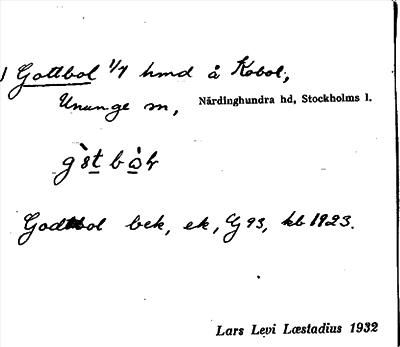 Gottbol 1/4 hmd å Kobol;
Ununge sn, Närdinghundra hd, Stockholms l.
Godtbol bek, ek, G 93, kb 1923.
Lars Levi Læstadius 1932